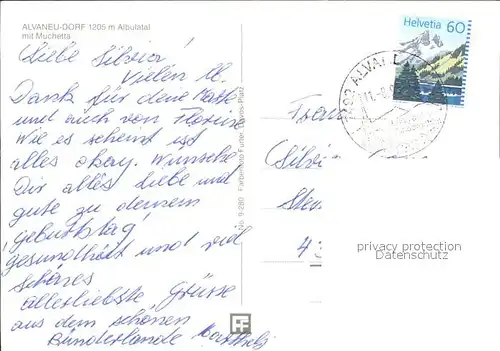 ALVANEU-DORF 1205 m Albulatal
mit Muchetta
Liebe Silvia!
Vielen ll.
Dank für deine Karte
und auch von
Wie es scheint ist
alles okay. Wünsche
Dir alles Liebe und
gute zu deinem
Geburtstag!
gesundheit und viel
schönes
allerliebste Grüsse
aus dem schönen
Bündnerlande
No. 9-280 Farbenfoto Furter, Davos-Platz
Helvetia 60
ALVA
Frau
Silvi
privacy protection
Dateschutz